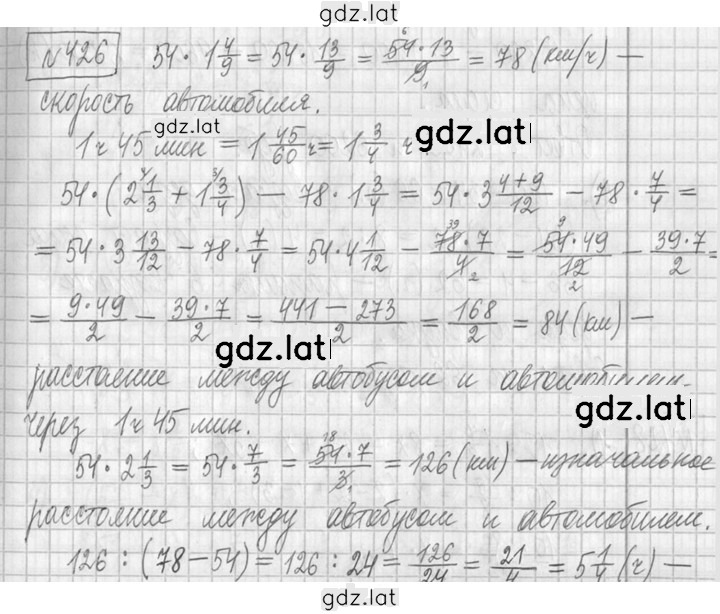 gdz.lat
№426 54 · 1 4/9 = 54 · 13/9 = 54·13/9 = 78 (км/ч) —
скорость автомобиля.
gdz.lat
gdz.lat
1 ч 45 мин = 1 45/60 ч = 1 3/4 ч
54 · (2 1/3 + 1 3/4) — 78 · 1 3/4 = 54 · 3 4+9/12 — 78 · 7/4 =
= 54 · 3 13/12 — 78 · 7/4 = 54 · 4 1/12 — 78·7/4 = 54·49/12 — 39·7/2 =
= 9·49/2 — 39·7/2 = 441 — 273/2 = 168/2 = 84 (км) —
gdz.lat
расстояние между автобусом и
gdz.lat
через 1 ч 45 мин.
54 · 2 1/3 = 54 · 7/3 = 54·7/3 = 126 (км) — изначальное
расстояние между автобусом и автомобилем.
126 : (78 — 54) = 126 : 24 = 126/24 = 21/4 = 5 1/4 (ч) —
gdz.lat